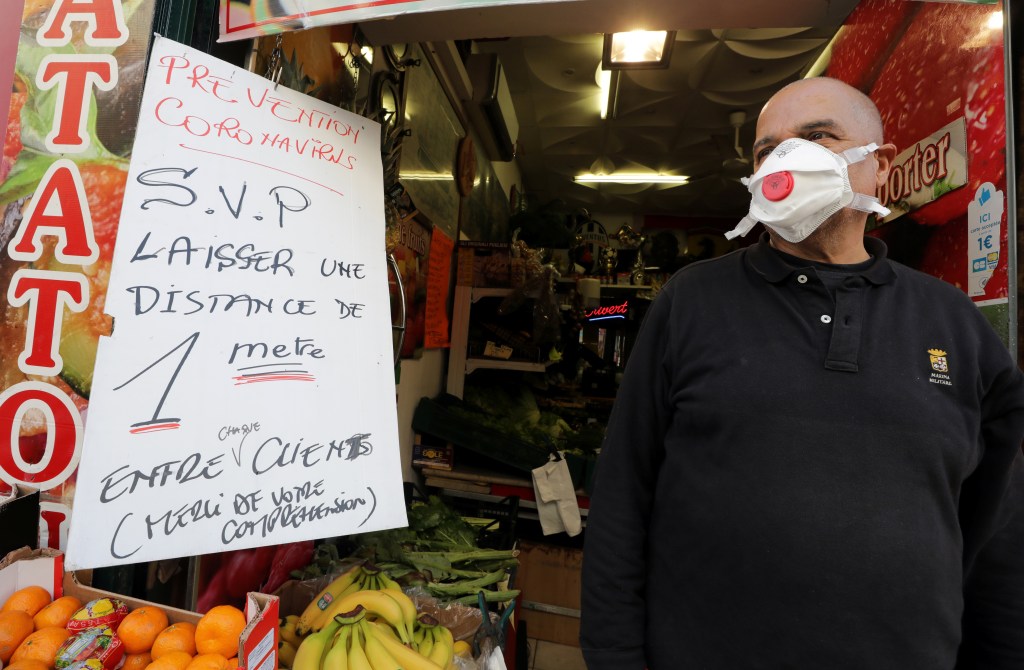 PRÉVENTION
CORONAVIRUS
S.V.P
LAISSER UNE
DISTANCE DE
1 metre
CHAQUE
ENTRE CLIENTS
(MERCI DE VOTRE
COMPRÉHENSION)
ATATO
Ouvert
porter
ICI
1€
MARINA
MILITARE